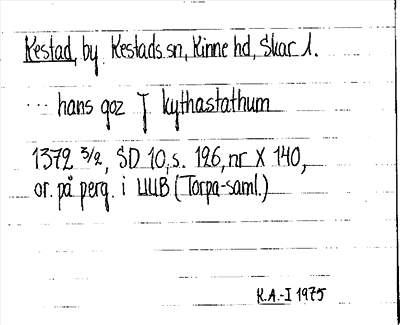 Kestad, by Kestads sn, Kinne hd, Skar l.
... hans goz J kythastathum
1372 3/2, SD 10, s. 126, nr X 140,
or. på perg. i UUB (Torpa-saml.)
K.A.-I 1975